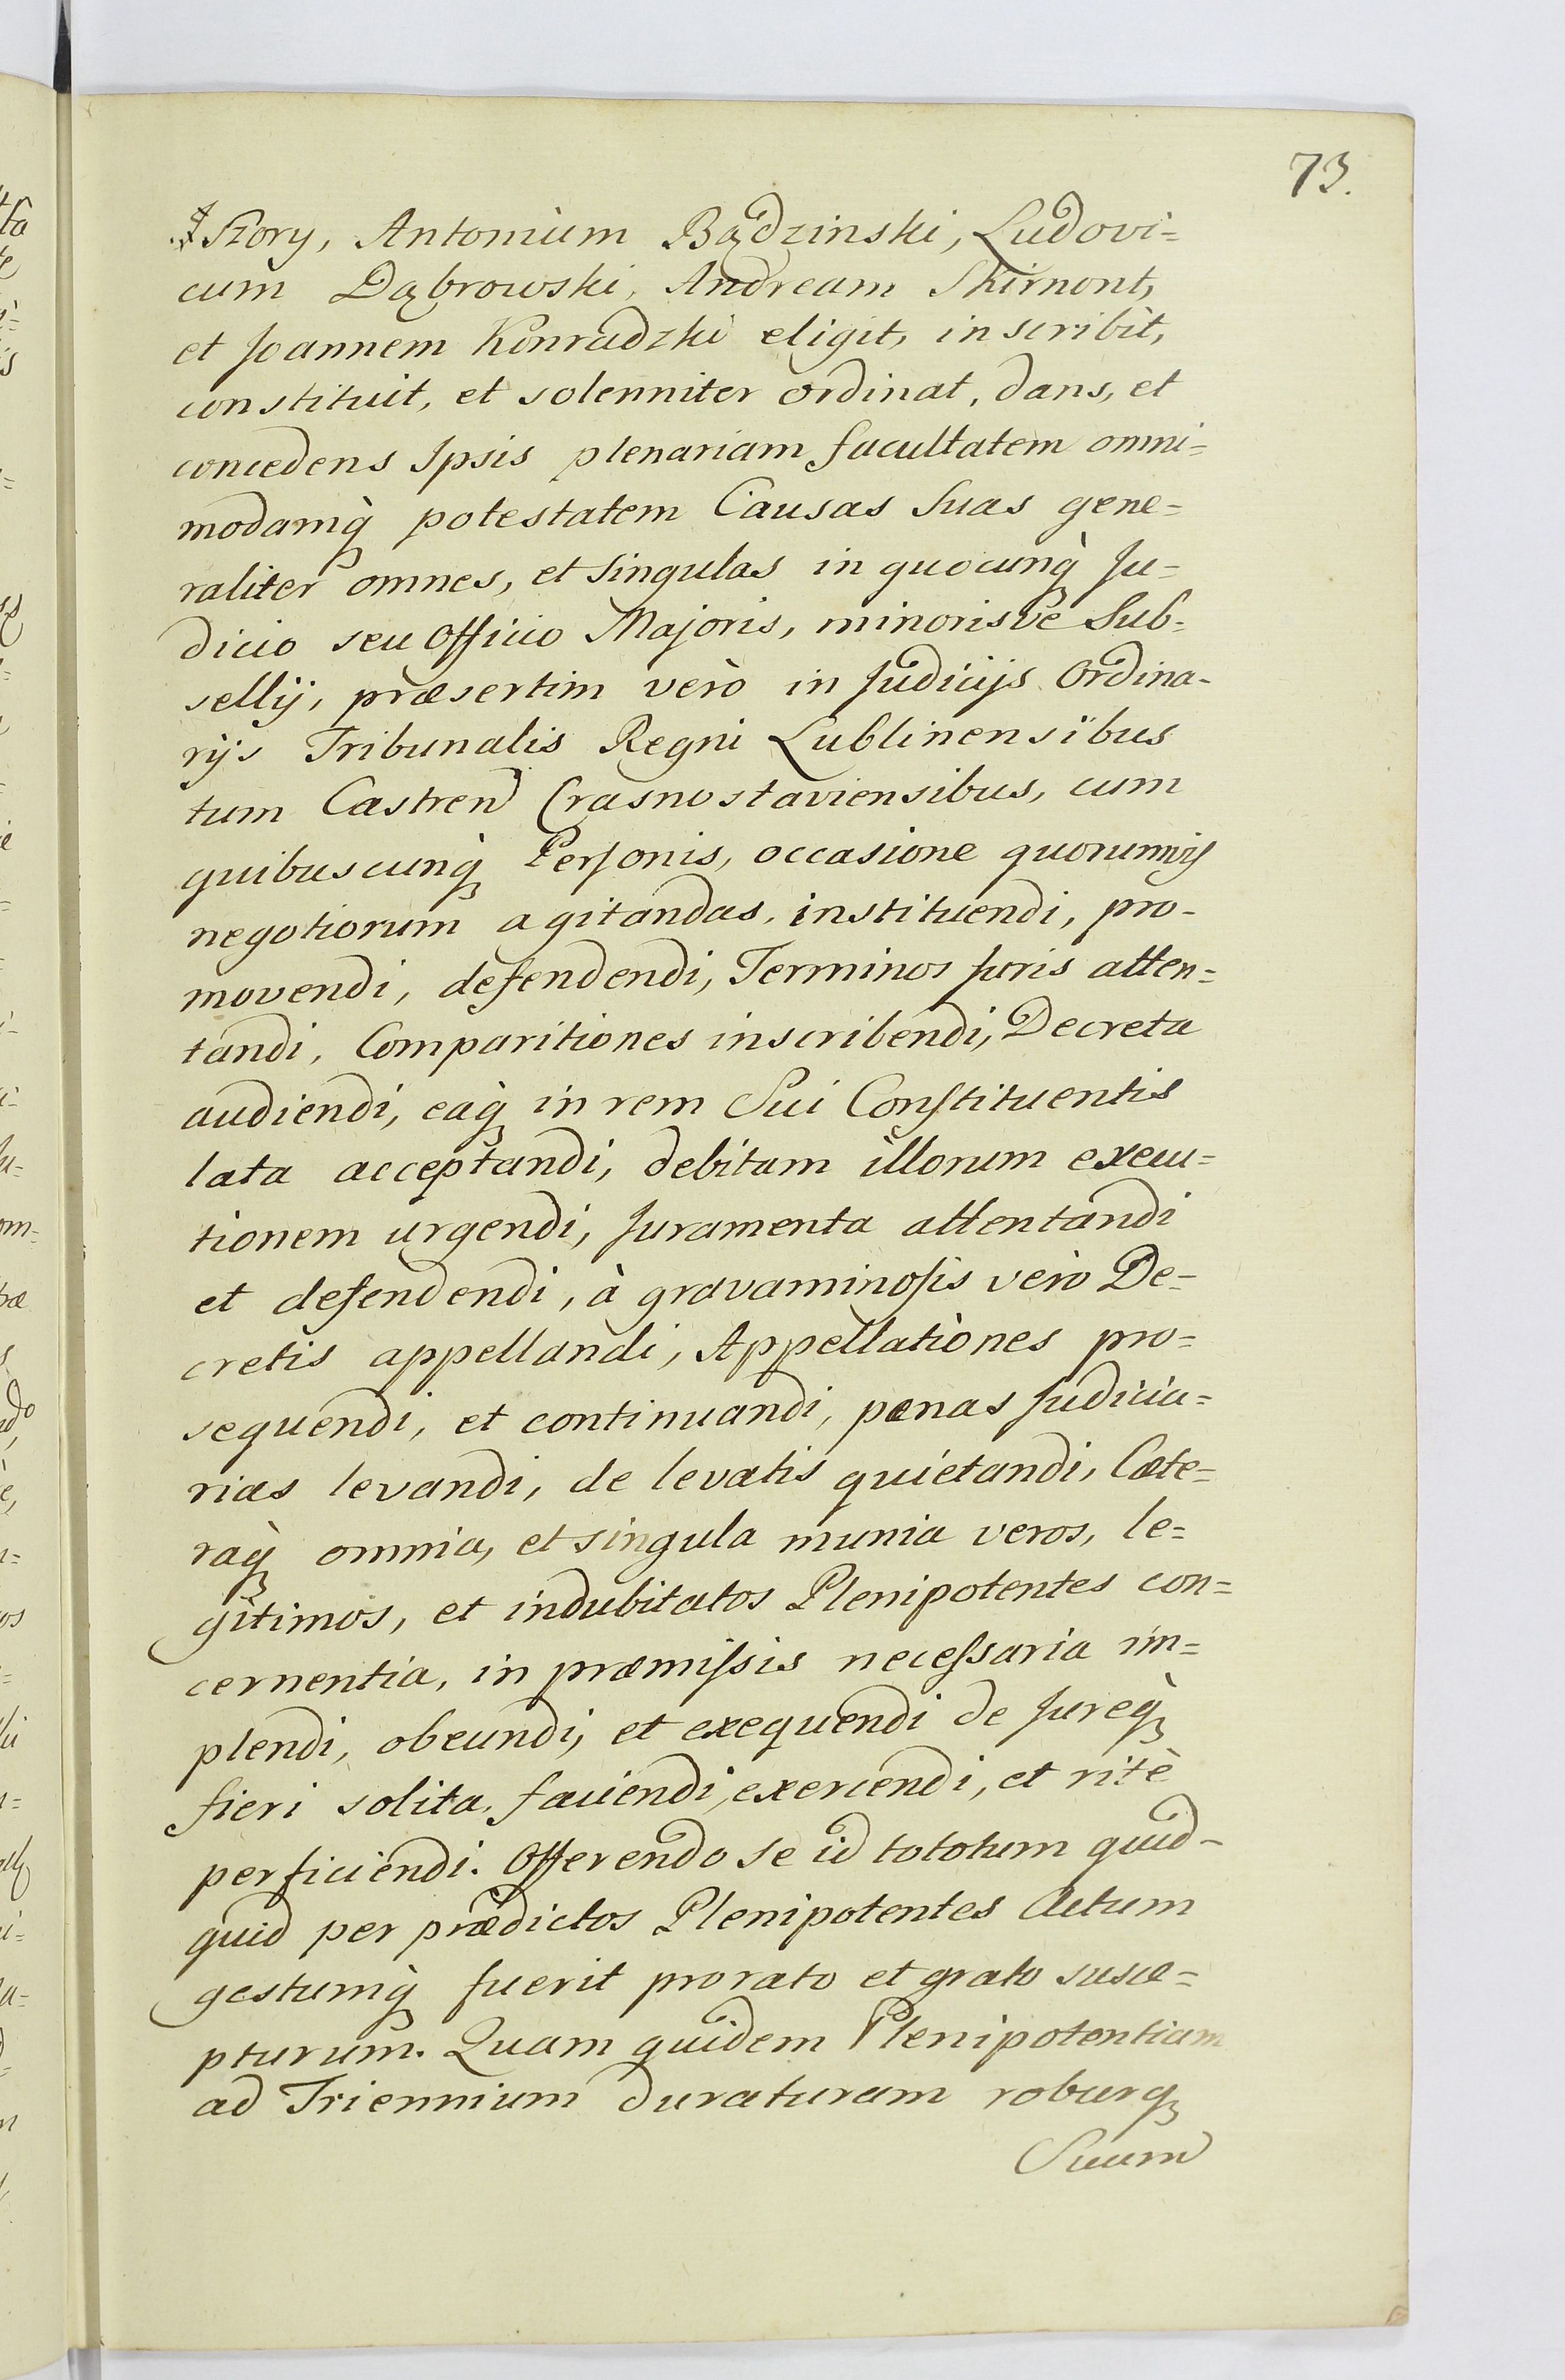 73.
Skory, Antonium Bądzinski, Ludovi=
cum Dąbrowski, Andream Skirmont,
et Joannem Konradzki eligit, inscribit,
constituit, et solenniter ordinat, dans, et
concedens Ipsis plenariam facultatem omni=
modamq̀ potestatem Causas suas gene=
raliter omnes, et singulas in quocunq̀ Ju=
dicio seu Officio Majoris, minorisve Sub=
sellij, præsertim verò in Judicijs Ordina-
rijs Tribunalis Regni Lublinensibus
tum Castren Crasnostaviensibus, cum
quibuscunq̀ Personis, occasione quorumvis
negotiorum agitandas, instituendi, pro-
movendi, defendendi, Terminos Juris atten=
tandi, Comparitiones inscribendi, Decreta
audiendi, eaq̀ in rem Sui Constituentis
lata acceptandi, debitam illorum execu=
tionem urgendi, Juramenta attentandi
et defendendi, à gravaminosis verò De=
cretis appellandi, Appellationes pro=
sequendi, et continuandi, pænas Judicia=
rias levandi, de levatis quietandi, Cæte=
raq̀ omnia, et singula munia veros, le=
gitimos, et indubitatos Plenipotentes con=
cernentia, in præmissis necessaria im=
plendi, obeundi, et exequendi de Jureq̀
fieri solita, faciendi, exercendi, et ritè
perficiendi. Offerendo se id tototum quid-
quid per prædictos Plenipotentes Actum
gestumq̀ fuerit prorato et grato susce=
pturum. Quam quidem Plenipotentiam
ad Triennium duraturam roburq̀
Suum